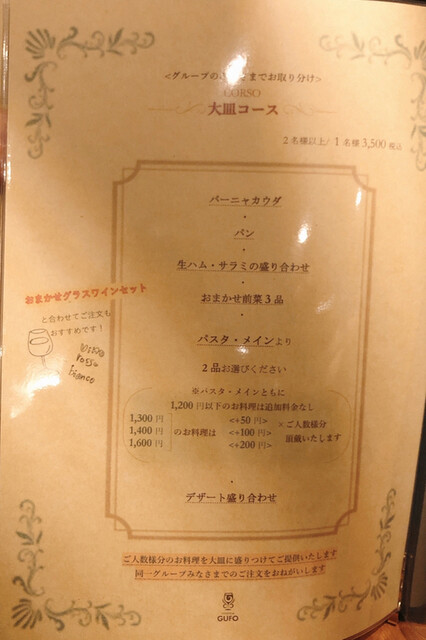 <グループのみなさまでお取り分け>
CORSO
大皿コース
2名様以上/1名様3,500税込
バーニャカウダ
・
パン
・
生ハム・サラミの盛り合わせ
・
おまかせ前菜3品
・
パスタ・メインより
2品お選びください
※パスタ・メインともに
1,200円以下のお料理は追加料金なし
1,300円 <+50円>
1,400円 のお料理は <+100円> ×ご人数様分
1,600円 <+200円> 頂戴いたします
・
デザート盛り合わせ
おまかせグラスワインセット
と合わせてご注文も
おすすめです!
vino
rosso
bianco
ご人数様分のお料理を大皿に盛りつけてご提供いたします
同一グループみなさまでのご注文をおねがいします
GUFO